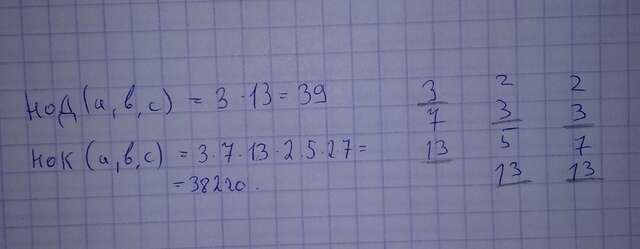 НОД (а, в, с) = 3 · 13 = 39
НОК (а, в, с) = 3 · 7 · 13 · 2 · 5 · 27 =
= 38220.
3 2 2
7 3 3
13 5 7
13 13